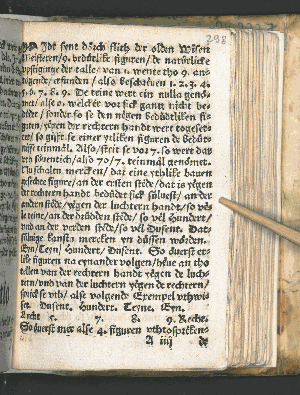 298
Jdt synt dorch flith der olden Wysen
Meisteren / 9. bedütlike figuren / de natürlicke
vpstiginge der talle / van 1. wente tho 9. an-
tögende / erfunden / also beschreuen 1. 2. 3. 4.
5. 6. 7. 8. 9. De teine wert ein nulla genö-
met / also 0. welcker vor sick gantz nicht be-
düdet / sonder so se den negen bedütliken fi-
guren / yegen der rechtern handt wert togesett
so gifft se einer ytliken figuren de bedüt-
nisse teinmäl. Also / steit se vor 7. so wert dar
vth söuentich / also 70 / 7. teinmäl genömet.
Nu schalm mercken / dat eine ythlike bauen
geschreue figure / an der ersten stede / dat is yegen
der rechtern handt bedüdet sick süluest / an der
andern stede / yegen der luchtern handt / so vel
teine / an der drüdden stede / so vel Hundert /
vnd an der verden stede / so vel Dusent. Dat
sülvige konstu mercken yn düssen wörden.
Eyn / Teyn / Hundert / Dusent. So öuerst et-
like figuren na eynander volgen / heue an tho
tellen van der rechtern handt yegen de luch-
tern / vnd van der luchtern yegen de rechtern /
sprick se vth / alse volgende Exempel vthwi-
set. Dusent. Hundert. Teyne. Eyn.
Lucht 5. 7. 8. 9. Recht.
So öuerst mer alse 4. figuren vthtospreken-
A iiij de